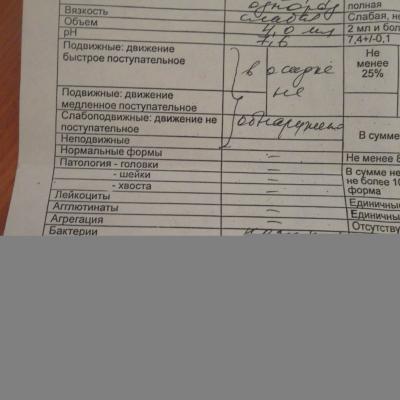 однород полная
Вязкость слабая Слабая, не
Объем 4,0 мл 2 мл и бол
pH 7,6 7,4+/-0,1
Подвижные: движение
быстрое поступательное в осадке Не
менее
25%
Подвижные: движение не
медленное поступательное
Слабоподвижные: движение не обнаружено
поступательное В сумме
Неподвижные
Нормальные формы – Не менее 8
Патология - головки – В сумме не
- шейки – не более 10
- хвоста – форма
Лейкоциты –
Агглютинаты – Единичные
Агрегация – Единичны
Бактерии Отсутству